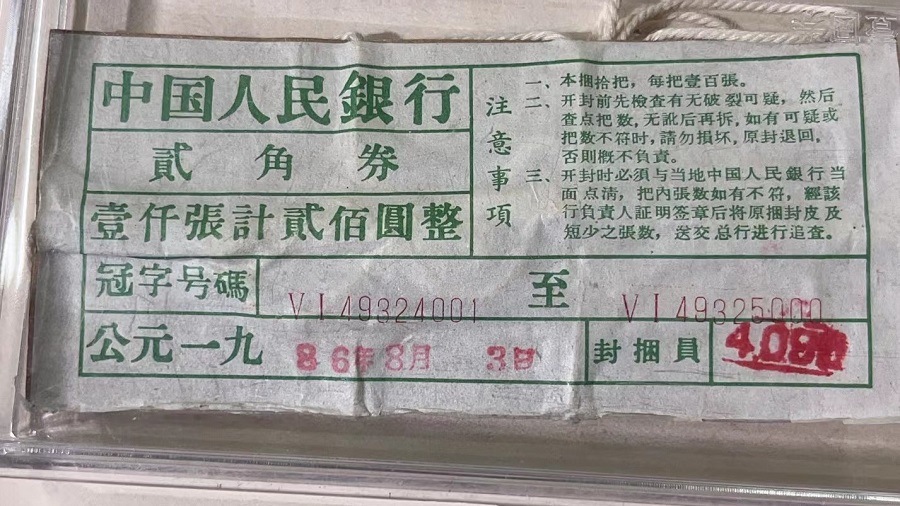 中国人民銀行
貳角券
壹仟張計貳佰圓整
注意事項
一、本捆拾把，每把壹百張。
二、开封前先檢查有无破裂可疑，然后
查点把数，无訛后再拆，如有可疑或
把数不符时，請勿損坏，原封退回，
否則概不負責。
三、开封时必須与当地中国人民銀行当
面点淸，把內張数如有不符，經該
行負責人証明签章后将原捆封皮及
短少之張数，送交总行进行追查。
冠字号碼 VI49324001 至 VI49325000
公元一九86年8月3日 封捆員